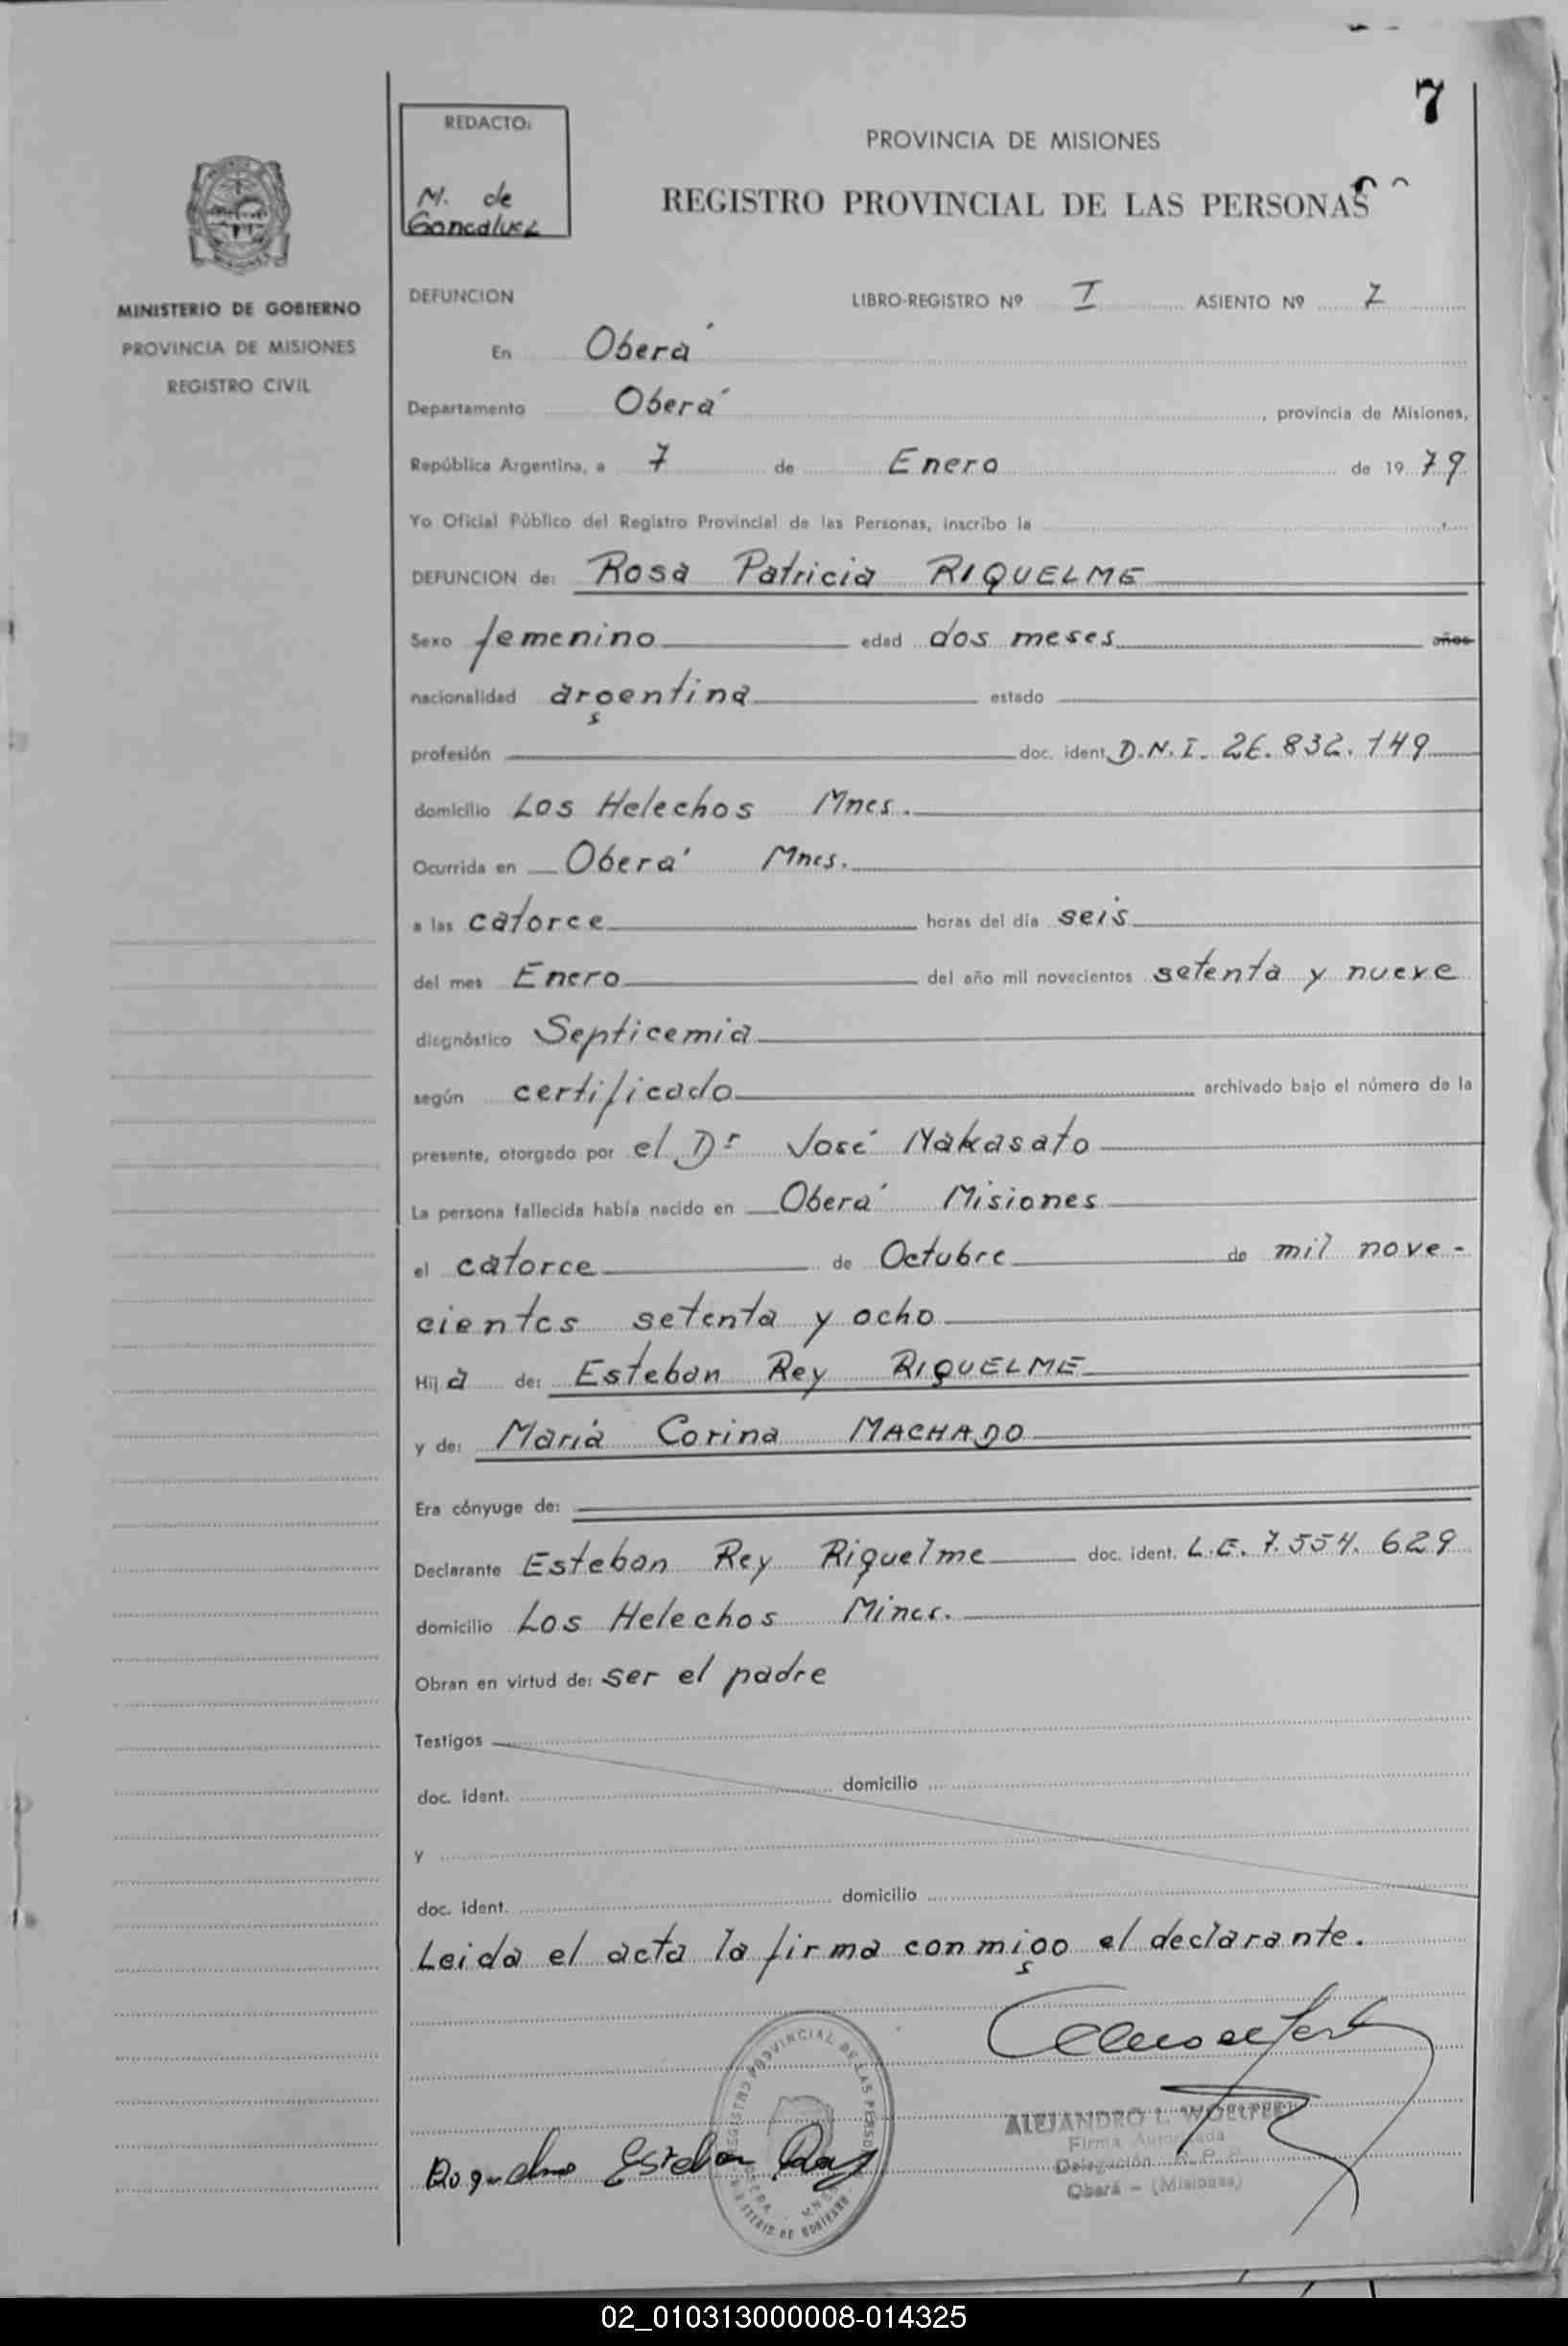 7
REDACTO:
M. de
Goncalvez
PROVINCIA DE MISIONES
REGISTRO PROVINCIAL DE LAS PERSONAS
MINISTERIO DE GOBIERNO
PROVINCIA DE MISIONES
REGISTRO CIVIL
DEFUNCION LIBRO-REGISTRO Nº I ASIENTO Nº 7
En Oberá
Departamento Oberá, provincia de Misiones,
República Argentina, a 7 de Enero de 1979
Yo Oficial Público del Registro Provincial de las Personas, inscribo la
DEFUNCION de: Rosa Patricia RIQUELME
Sexo femenino edad dos meses años
nacionalidad argentina estado
profesión doc. ident. D.N.I. 26.832.149
domicilio Los Helechos Mnes.
Ocurrida en Oberá Mnes.
a las catorce horas del día seis
del mes Enero del año mil novecientos setenta y nueve
diagnóstico Septicemia
según certificado archivado bajo el número de la
presente, otorgado por el Dr José Nakasato
La persona fallecida había nacido en Oberá Misiones
el catorce de Octubre de mil nove-
cientos setenta y ocho
Hija de: Esteban Rey RIQUELME
y de: María Corina MACHADO
Era cónyuge de:
Declarante Esteban Rey Riquelme doc. ident. L.E. 7.554.629
domicilio Los Helechos Mines.
Obran en virtud de: ser el padre
Testigos
doc. ident. domicilio
y
doc. ident. domicilio
Leida el acta la firma conmigo el declarante.
REGISTRO PROVINCIAL DE LAS PERSONAS
ALEJANDRO L. WOELFERT
Firma Autorizada
Delegación R. P. P.
Oberá - (Misiones)
Esteban Rey
02_010313000008-014325